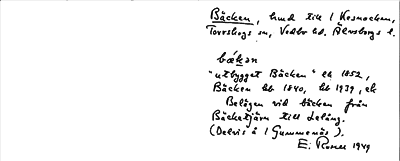 Bäcken, hmd till 1 Kosnacken,
Torrskogs sn, Vedbo hd. Älvsborgs l.
bäkən
"utbygget Bäcken" ek 1852,
Bäcken hb 1840, hb 1939, ek
Belägen vid bäcken från
Bäcketjärn till Lelång.
(Delvis å 1 Gummenäs).
E. Rosell 1949